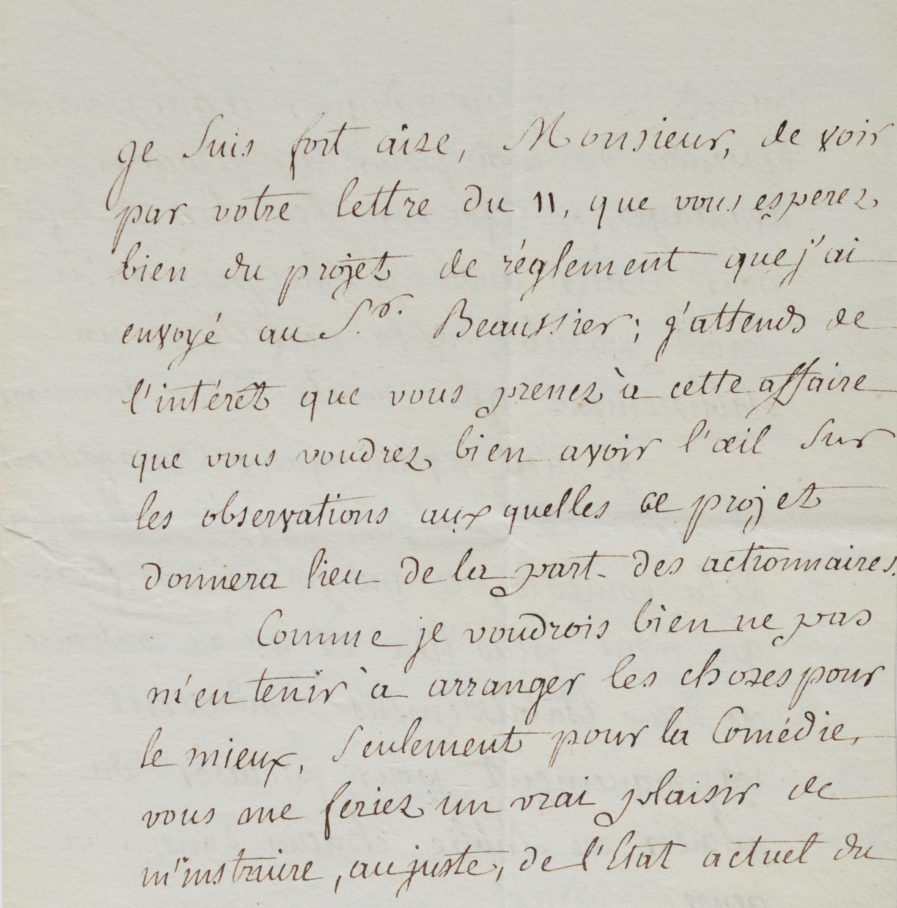 je suis fort aize, Monsieur, de voir
par votre lettre du 11, que vous esperez
bien du projet de réglement que j'ai
envoyé au S.r Beaussier; j'attends de
l'intérêt que vous prenez à cette affaire
que vous voudrez bien avoir l'œil sur
les observations aux quelles ce projet
donnera lieu de la part des actionnaires.
Comme je voudrois bien ne pas
m'en tenir à arranger les chozes pour
le mieux, seulement pour la Comédie,
vous me feriez un vrai plaisir de
m'instruire, au juste, de l'Etat actuel du